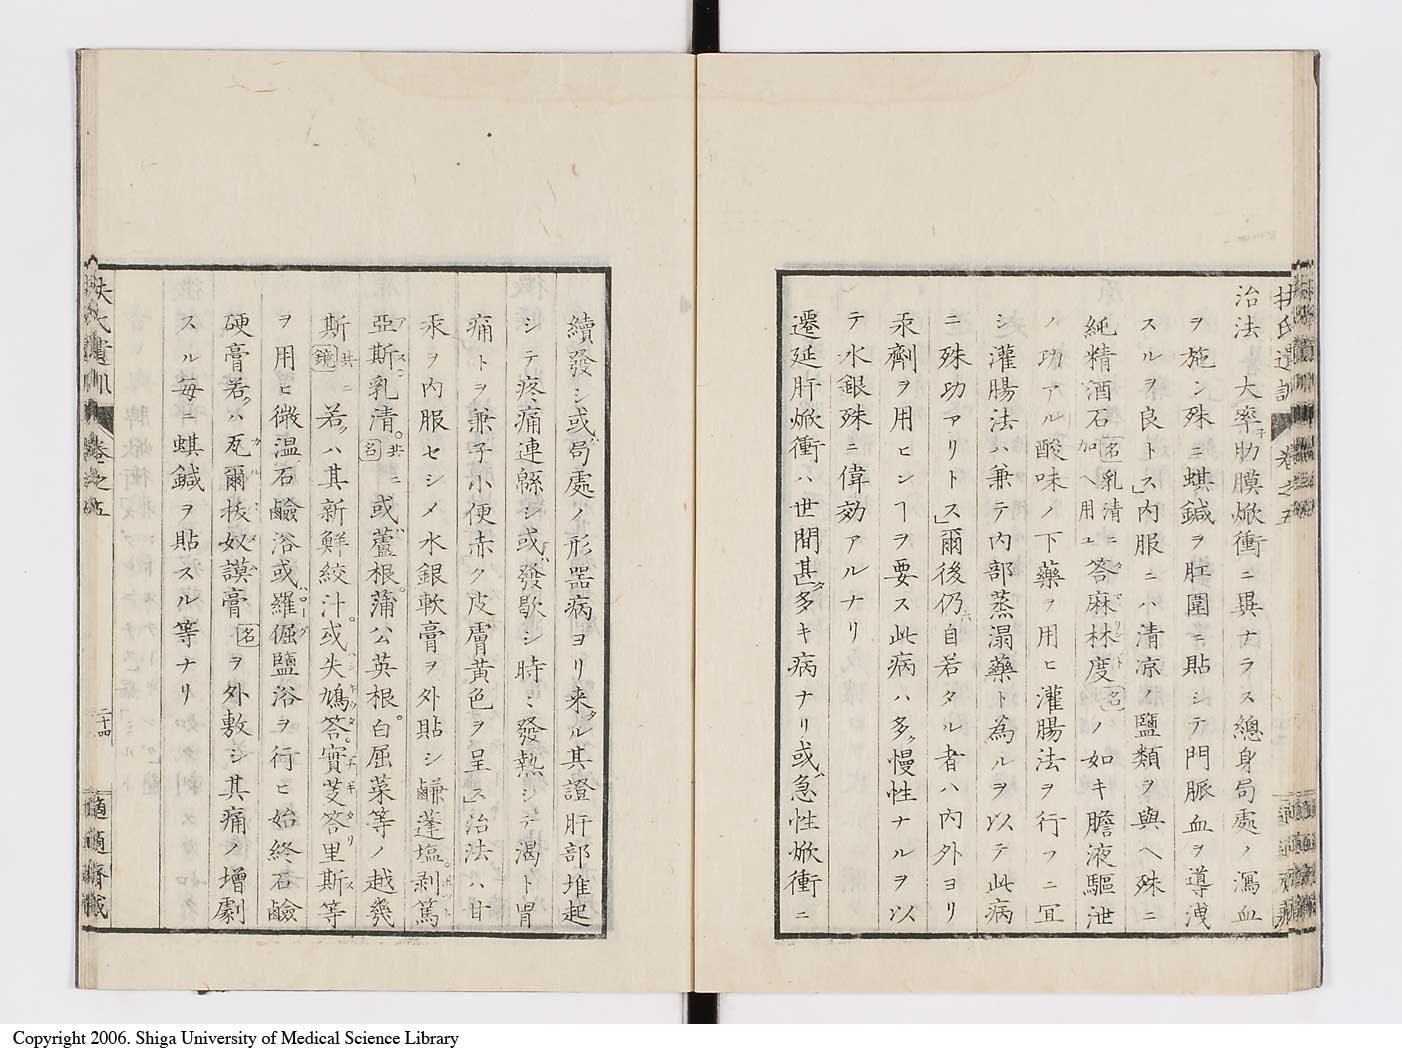 扶氏遺訓 巻之五
治法 大率子肋膜焮衝ニ異ナラス總身局處ノ瀉血
ヲ施シ殊ニ蜞鍼ヲ肛圍ニ貼シテ門脈血ヲ導洩
スルヲ良トス」内服ニハ清凉ノ鹽類ヲ與ヘ殊ニ
純精酒石名乳清ニ加ヘ用ユ答麻林度名ノ如キ膽液驅泄
ノ功アル酸味ノ下藥ヲ用ヒ灌腸法ヲ行フニ宜
シ灌腸法ハ兼テ内部蒸溻藥ト為ルヲ以テ此病
ニ殊功アリトス」爾後仍ホ自若タル者ハ内外ヨリ
汞劑ヲ用ヒンヿヲ要ス此病ハ多ク慢性ナルヲ以
テ水銀殊ニ偉効アルナリ
遷延肝焮衝ハ世間甚タ多キ病ナリ或ハ急性焮衝ニ
續發シ或ハ局處ノ形器病ヨリ来ル其證肝部堆起
シテ疼痛連緜シ或ハ發歇シ時ニ發熱シテ渴ト胃
痛トヲ兼子小便赤ク皮膚黄色ヲ呈ス」治法ハ甘
汞ヲ内服セシメ水銀軟膏ヲ外貼シ鹻蓬塩。剥篤
亞斯乳清。共ニ名或ハ蘆根。蒲公英根。白屈菜等ノ越幾
斯共ニ鏡若クハ其新鮮絞汁。或失鳩答。實芰答里斯等
ヲ用ヒ微温石鹼浴或羅倔鹽浴ヲ行ヒ始終石鹼
硬膏若クハ瓦爾抜奴謨膏名ヲ外敷シ其痛ノ增劇
スル毎ニ蜞鍼ヲ貼スル等ナリ
扶氏遺訓 巻之五 二十四 適適齋藏
Copyright 2006. Shiga University of Medical Science Library